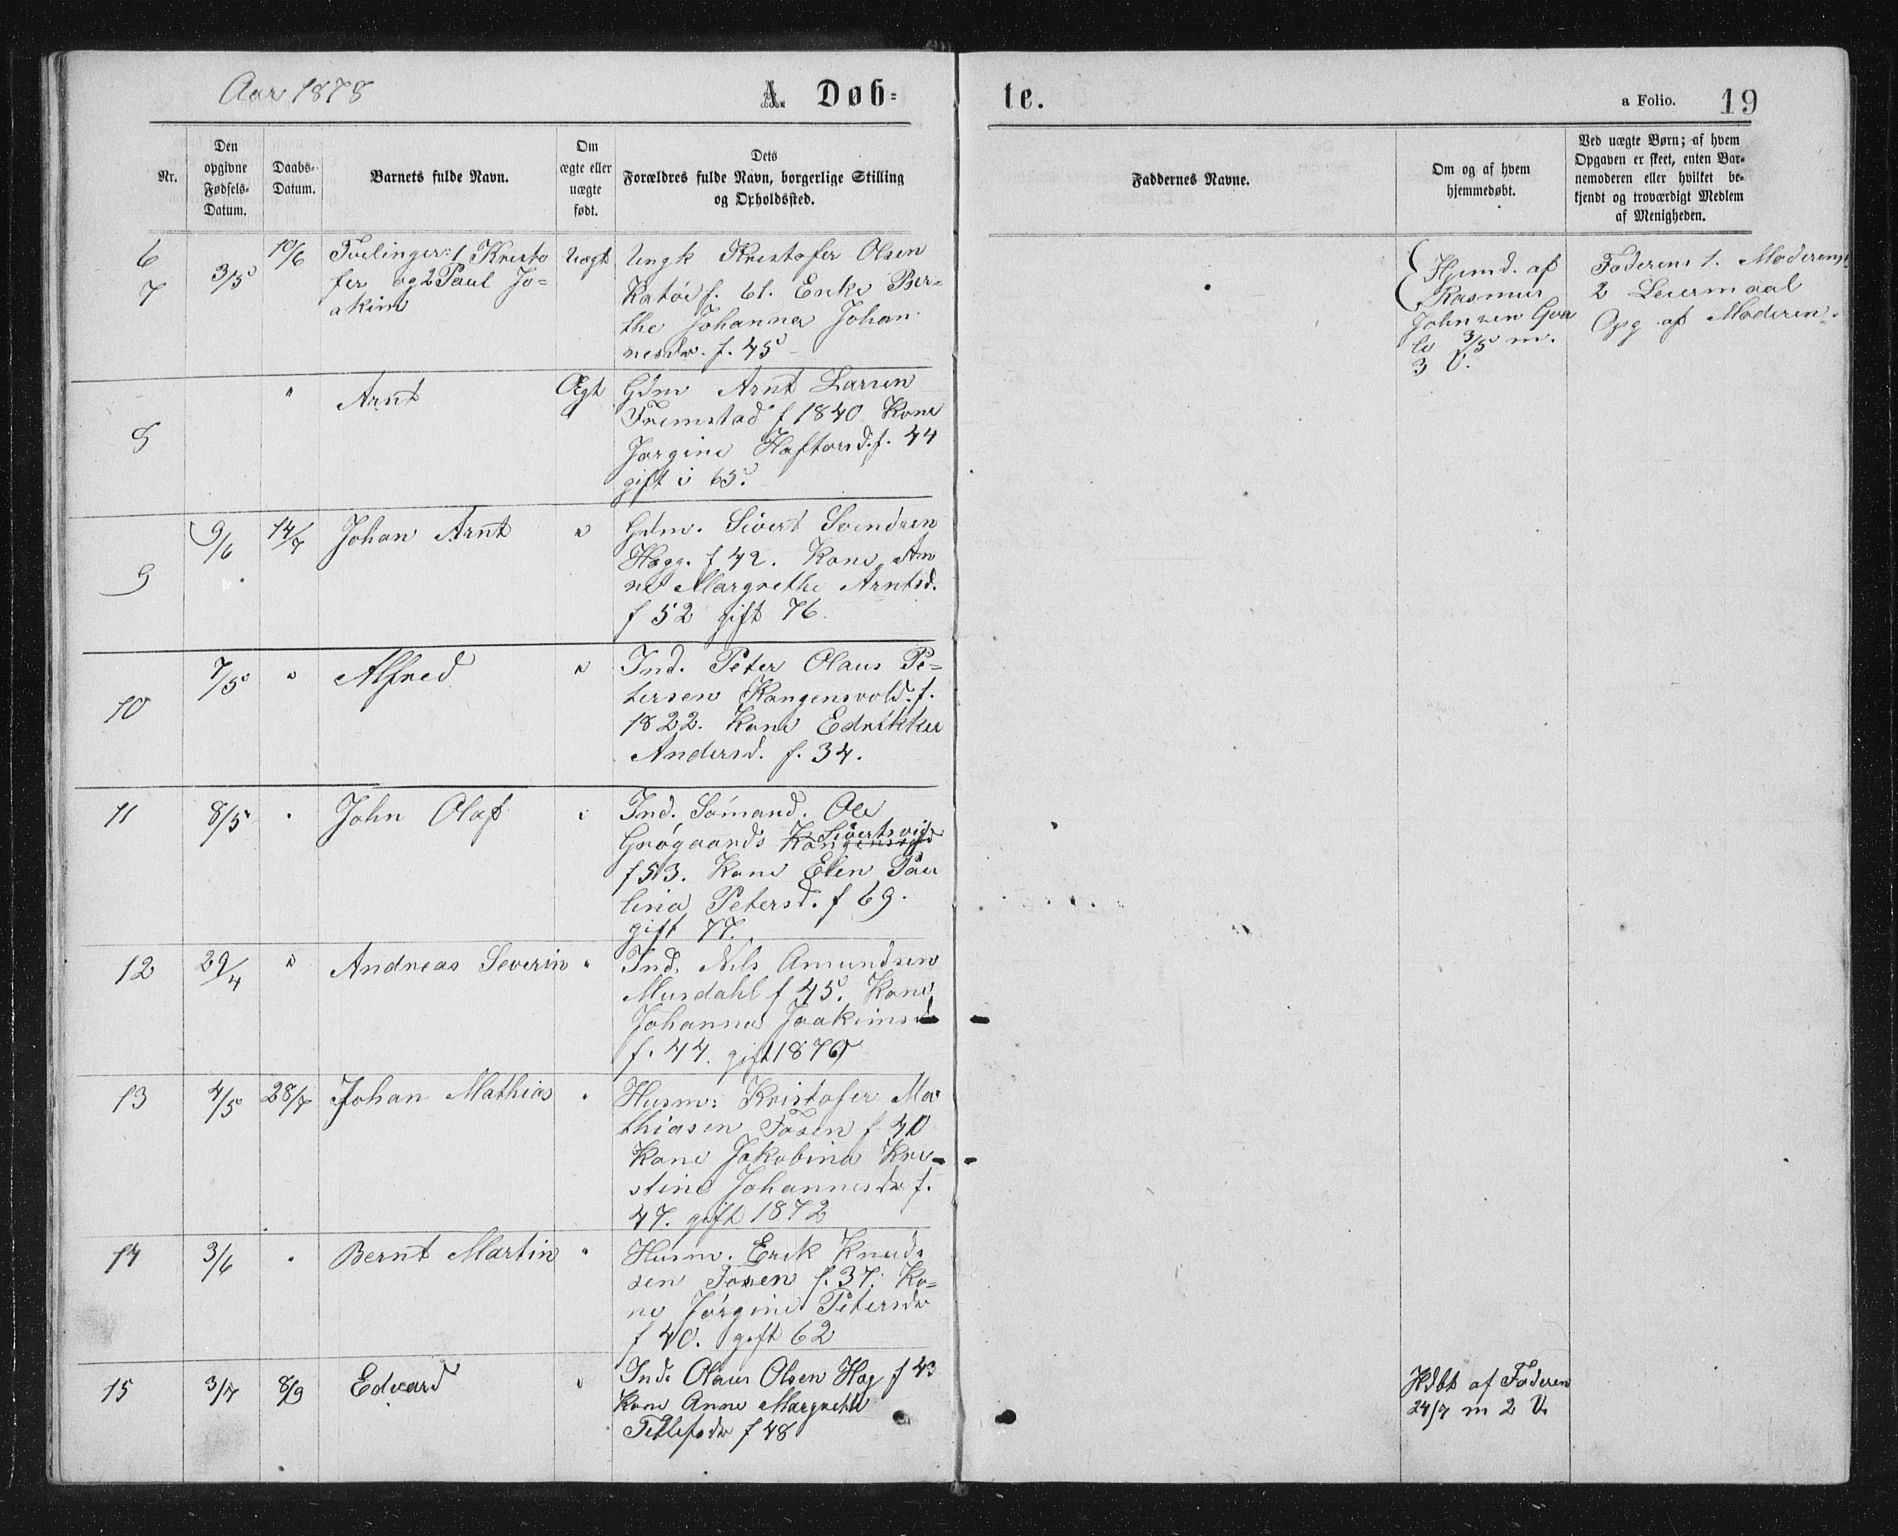 Aar 1878
A. Døb-
te.
a Folio.
19
Nr.
Den
opgivne
Fødsels-
Datum.
Daabs-
Datum.
Barnets fulde Navn.
Om
ægte eller
uægte
født.
Dets
Forældres fulde Navn, borgerlige Stilling
og Opholdssted.
Faddernes Navne.
Om og af hvem
hjemmedøbt.
Ved uægte Børn; af hvem
Opgaven er skeet, enten Bar-
nemoderen eller hvilket be-
kjendt og troværdigt Medlem
af Menigheden.
6
7
3/5
10/6
Tvelinger: 1 Kristo
fer og 2 Paul Jo=
akim
Uægt
Ungk Kristofer Olsen
f. 61. Enke Ber=
the Johanna Johan
nesdr. f. 45
Hjemd. af
Rasmus
Johnsen
3/5 m.
3 V.
Faderens 1. Moderens
2 Leiermaal
Opg af Moderen.
8
"
Arnt
Ægt
Gdm Arnt Larsen
Fremstad f 1840 Kone
Jorgine Haftorsd. f. 44
gift i 65.
9
9/6
14/7
Johan Arnt
"
Gdm. Sivert Svendsen
Hagg. f 42. Kone An
ne Margrethe Arntsd.
f 52 gift 76.
10
7/5
"
Alfred
"
Ind. Peter Olaus Pe=
tersen Kongensvold. f.
1822. Kone Edrikke
Andersd. f. 34.
11
8/5
"
John Olaf
"
Ind. Sømand. Ole
Grøgaards Kongensvold Sivertsvig
f 53. Kone Elen Pau
lina Petersd. f 69.
gift 77.
12
29/4
"
Andreas Severin
"
Ind. Nils Amundsen
Musdahl f 45. Kone
Johanna Joakimsd
f. 44. gift 1870
13
4/5
28/7
Johan Mathias
"
Husm: Kristofer Ma
thiasen Fosen f 40
Kone Jakobina Kri-
stine Johannesdr f.
47. gift 1872
14
3/6
"
Bernt Martin
"
Husm. Erik Knud
sen Fosen f. 37. Ko=
ne Jørgine Petersdr
f 40. gift 62
15
3/7
8/9
Edvard
"
Ind. Olaus Olsen Hag f 43
Kone Anne Margrethe
Tellefsdr f 48
Hdbt af Faderen
24/7 m 2 V.